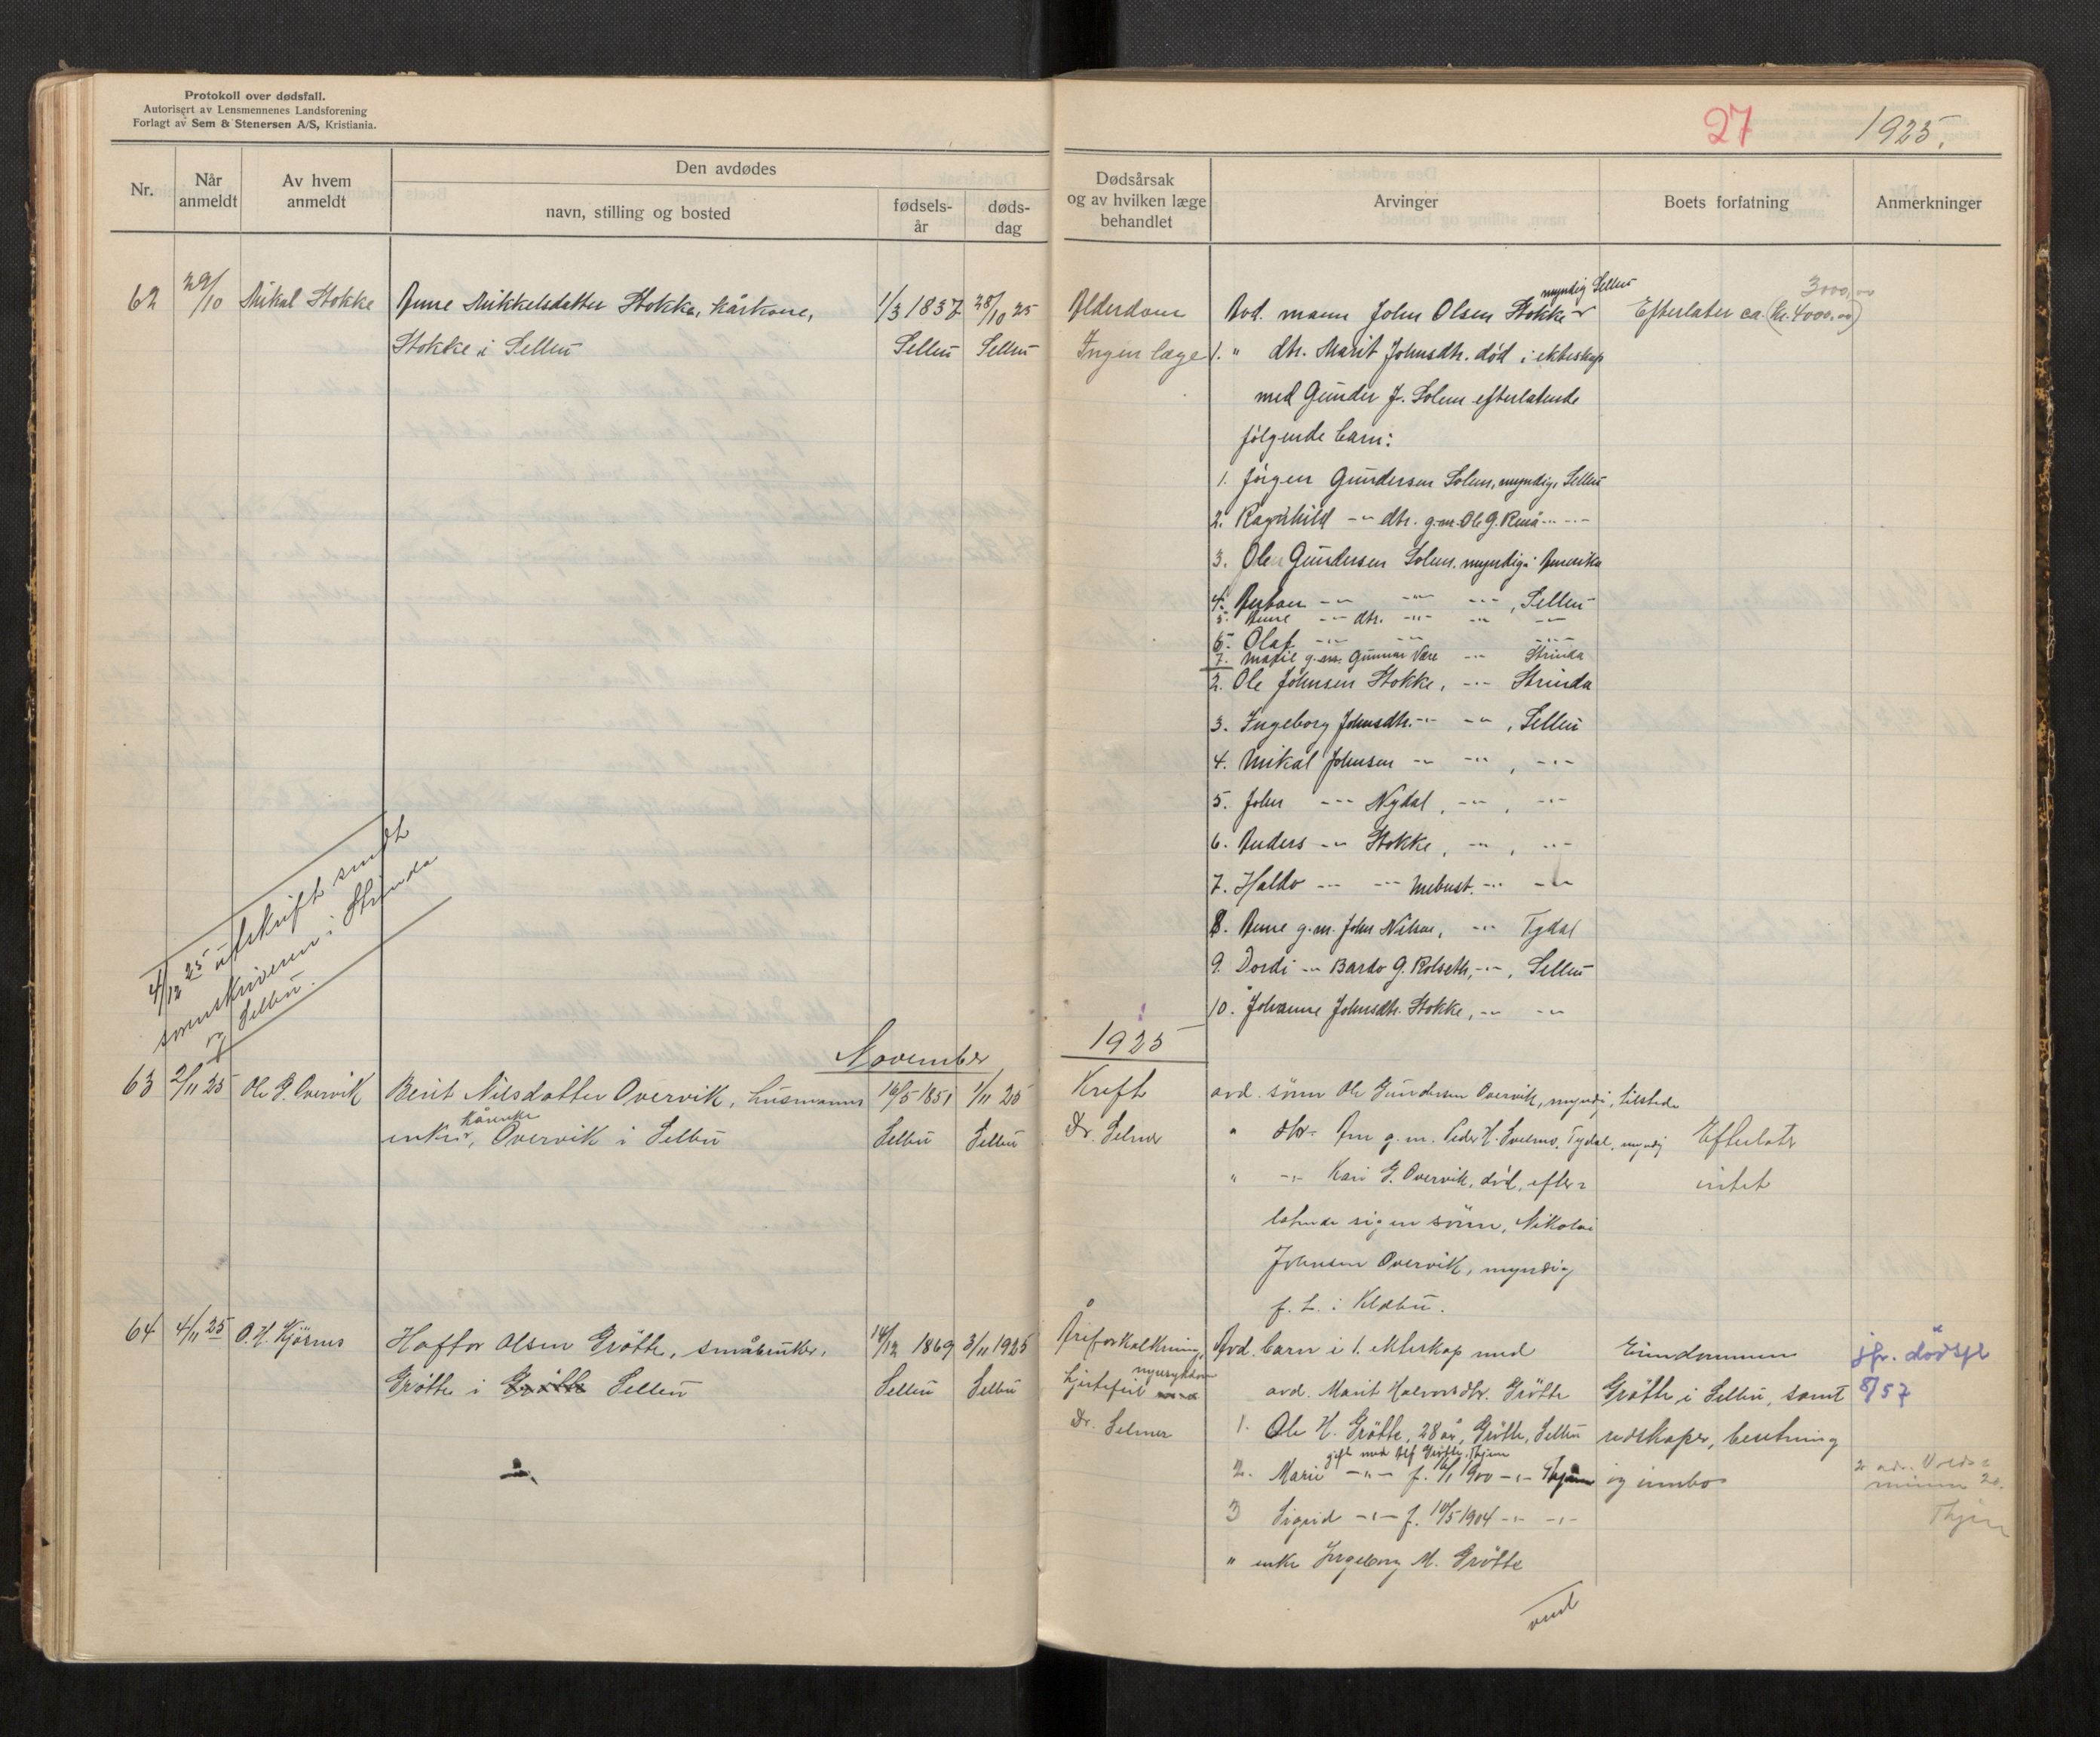 Protokoll over dødsfall.
Autorisert av Lensmennenes Landsforening
Forlagt av Sem & Stenersen A/S, Kristiania.
27
1925.
Nr.
Når anmeldt
Av hvem anmeldt
Den avdødes
navn, stilling og bosted
fødsels-år
døds-dag
Dødsårsak og av hvilken læge behandlet
Arvinger
Boets forfatning
Anmerkninger
62 29/10 Mikal Stokke Anne Mikkelsdatter Stokke, kårkone, 1/3 1837 28/10 25
Stokke i Selbu Selbu Selbu
Alderdom
Ingen læge
myndig Selbu
Avd. mann John Olsen Stokke
1. " dtr. Marit Johnsdtr. død i ekteskap
med Gunder J. Solem efterlatende
følgende barn:
1. Jørgen Gundersen Solem, myndig, Selbu
2. Ragnhild -"- dtr. g.m. Ole G. Renå -"- -"-
3. Ole Gundersen Solem, myndig i Amerika
4. -"- -"- -"-, Selbu
5. Anne -"- dtr. -"- -"- -"-
6. Olaf -"- -"- -"-
7. Marie g.m. Gunnar Vere -"- Strinda
2. Ole Johnsen Stokke, -"- Strinda
3. Ingeborg Johnsdtr. -"- -"-, Selbu
4. Mikal Johnsen -"- -"-, -"-
5. John -"- Nydal, -"-, -"-
6. Anders -"- Stokke, -"-, -"-
7. Haldo -"- -"- Mebust. -"- -"-
8. Anne g.m. John Nilsen, -"- Tydal
9. Dordi -"- Bardo G. Rolseth, -"-, Selbu
10. Johanne Johnsdtr. Stokke, -"- -"-
3000,00
Efterlater ca. (kr. 4000.00)
4/12 25 utskrift sendt
sorenskriveren i Strinda
og Selbu.
November
1925
63 2/11 25 Ole G. Overvik Berit Nilsdatter Overvik, husmanns 16/5 1851 1/11 25
kårenke
enke, Overvik i Selbu Selbu Selbu
Kreft
Dr. Selmer
avd. sønn Ole Gundersen Overvik, myndig, tilstede
" dtr. Ane g.m. Peder H. Svelmo, Tydal, myndig
" -"- Kari G. Overvik, død, efter=
latende sig en sønn, Nikolai
Johnsen Overvik, myndig
f. t. i Klæbu.
Efterlater
intet
64 4/11 25 O. H. Kjøsnes Haftor Olsen Grøtte, småbruker, 14/12 1869 3/11 1925
Grøtte i Grøtte Selbu Selbu Selbu
Åreforkalkning,
nyresykdom
hjertefeil
Dr. Selmer
Avd. barn i 1. ekteskap med
avd. Marit Halvorsdtr. Grøtte
1. Ole H. Grøtte, 28 år, Grøtte, Selbu
gift med Alf Grøtte, Thjem
2. Marie -"- f. 6/1 1900 -"- Thjem
3 Sigrid -"- f. 10/5 1904 -"- -"-
" enke Ingeborg M. Grøtte
vend
Eiendommen
Grøtte i Selbu, samt
redskaper, besetning
og innbo
jfr. dødsfl
8/57